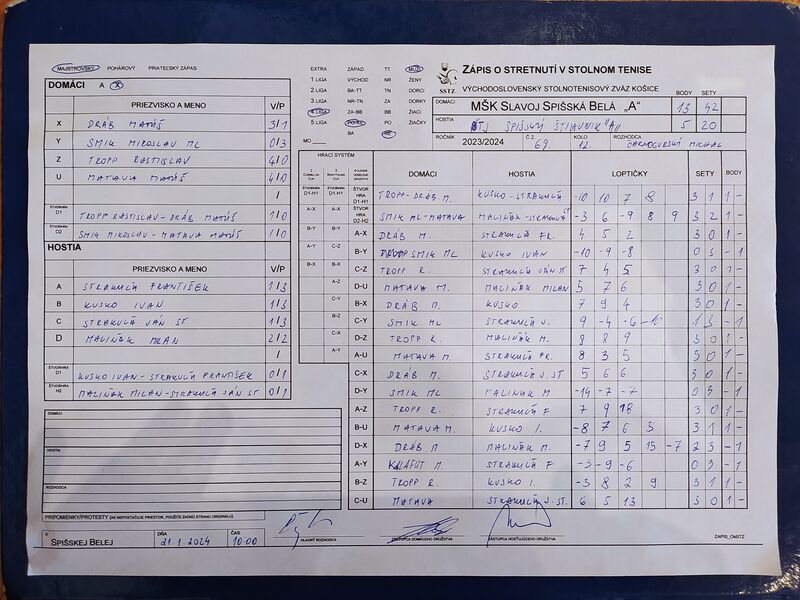 MAJSTROVSKÝ POHÁROVÝ PRIATEĽSKÝ ZÁPAS
DOMÁCI A X
PRIEZVISKO A MENO V/P
X DRÁB MATÚŠ 3/1
Y SMIK MIROSLAV ML 0/3
Z TROPP RASTISLAV 4/0
U MATAVA MATÚŠ 4/0
/
ŠTVORHRA D1 TROPP RASTISLAV - DRÁB MATÚŠ 1/0
ŠTVORHRA D2 SMIK MIROSLAV - MATAVA MATÚŠ 1/0
HOSTIA
PRIEZVISKO A MENO V/P
A STRAKULA FRANTIŠEK 1/3
B KUSKO IVAN 1/3
C STRAKULA JÁN ST 1/3
D MALINÁK MILAN 2/2
/
ŠTVORHRA D1 KUSKO IVAN - STRAKULA FRANTIŠEK 0/1
ŠTVORHRA H2 MALINAK MILAN - STRAKULA JÁN ST 0/1
DOMÁCI
HOSTIA
ROZHODCA
PRIPOMIENKY/PROTESTY (AK NEPOSTAČUJE PRIESTOR, POUŽITE ZADNÚ STRANU ORIGINÁLU)
V SPIŠSKEJ BELEJ DŇA 21.1.2024 ČAS 10:00
HLAVNÝ ROZHODCA ZÁSTUPCA DOMÁCEHO DRUŽSTVA ZÁSTUPCA HOSŤUJÚCEHO DRUŽSTVA ZÁPIS_OeSTZ
EXTRA ZÁPAD TT MUŽI
1. LIGA VÝCHOD NR ŽENY
2. LIGA BA-TT TN DORCI
3. LIGA NR-TN ZA DORKY
4. LIGA ZA-BB BB ŽIACI
5. LIGA PO-KE PO ŽIAČKY
BA KE
MO
SSTZ
ZÁPIS O STRETNUTÍ V STOLNOM TENISE
VÝCHODOSLOVENSKÝ STOLNOTENISOVÝ ZVÄZ KOŠICE
BODY SETY
DOMÁCI MŠK SLAVOJ SPIŠSKÁ BELÁ „A" 13 42
HOSTIA STJ SPIŠSKÝ ŠTIAVNIK "A" 5 20
ROČNÍK 2023/2024 Č.Z. 69. KOLO 12. ROZHODCA ČARNOGURSKÝ MICHAL
HRACÍ SYSTÉM
DOMÁCI HOSTIA LOPTIČKY SETY BODY
ŠTVORHRA D1-H1 TROPP - DRÁB M. KUSKO - STRAKULA -10 10 7 8 3 1 1 -
ŠTVORHRA D2-H2 SMIK ML - MATAVA MALINÁK - STRAKULA ST -3 6 -9 8 9 3 2 1 -
A-X DRÁB M. STRAKULA FR. 4 5 2 3 0 1 -
B-Y SMIK ML KUSKO IVAN -10 -9 -8 0 3 - 1
C-Z TROPP R. STRAKULA JÁN ST 7 4 5 3 0 1 -
D-U MATAVA M. MALINAK MILAN 5 7 6 3 0 1 -
B-X DRÁB M. KUSKO 7 9 4 3 0 1 -
C-Y SMIK ML STRAKULA J. 9 -4 -6 -10 1 3 - 1
D-Z TROPP R. MALINÁK M. 8 8 9 3 0 1 -
A-U MATAVA M. STRAKULA FR. 8 3 5 3 0 1 -
C-X DRÁB M. STRAKULA J. ST 5 6 6 3 0 1 -
D-Y SMIK ML MALINAK M -14 -7 -7 0 3 - 1
A-Z TROPP R. STRAKULA F 7 9 18 3 0 1 -
B-U MATAVA M. KUSKO I. -8 7 6 5 3 1 1 -
D-X DRÁB M MALINÁK M. -7 9 5 15 -7 2 3 - 1
A-Y KALAFUT M. STRAKULA F -3 -9 -6 0 3 - 1
B-Z TROPP R. KUSKO I. -3 8 2 9 3 1 1 -
C-U MATAVA STRAKULA J. ST. 6 5 13 3 0 1 -